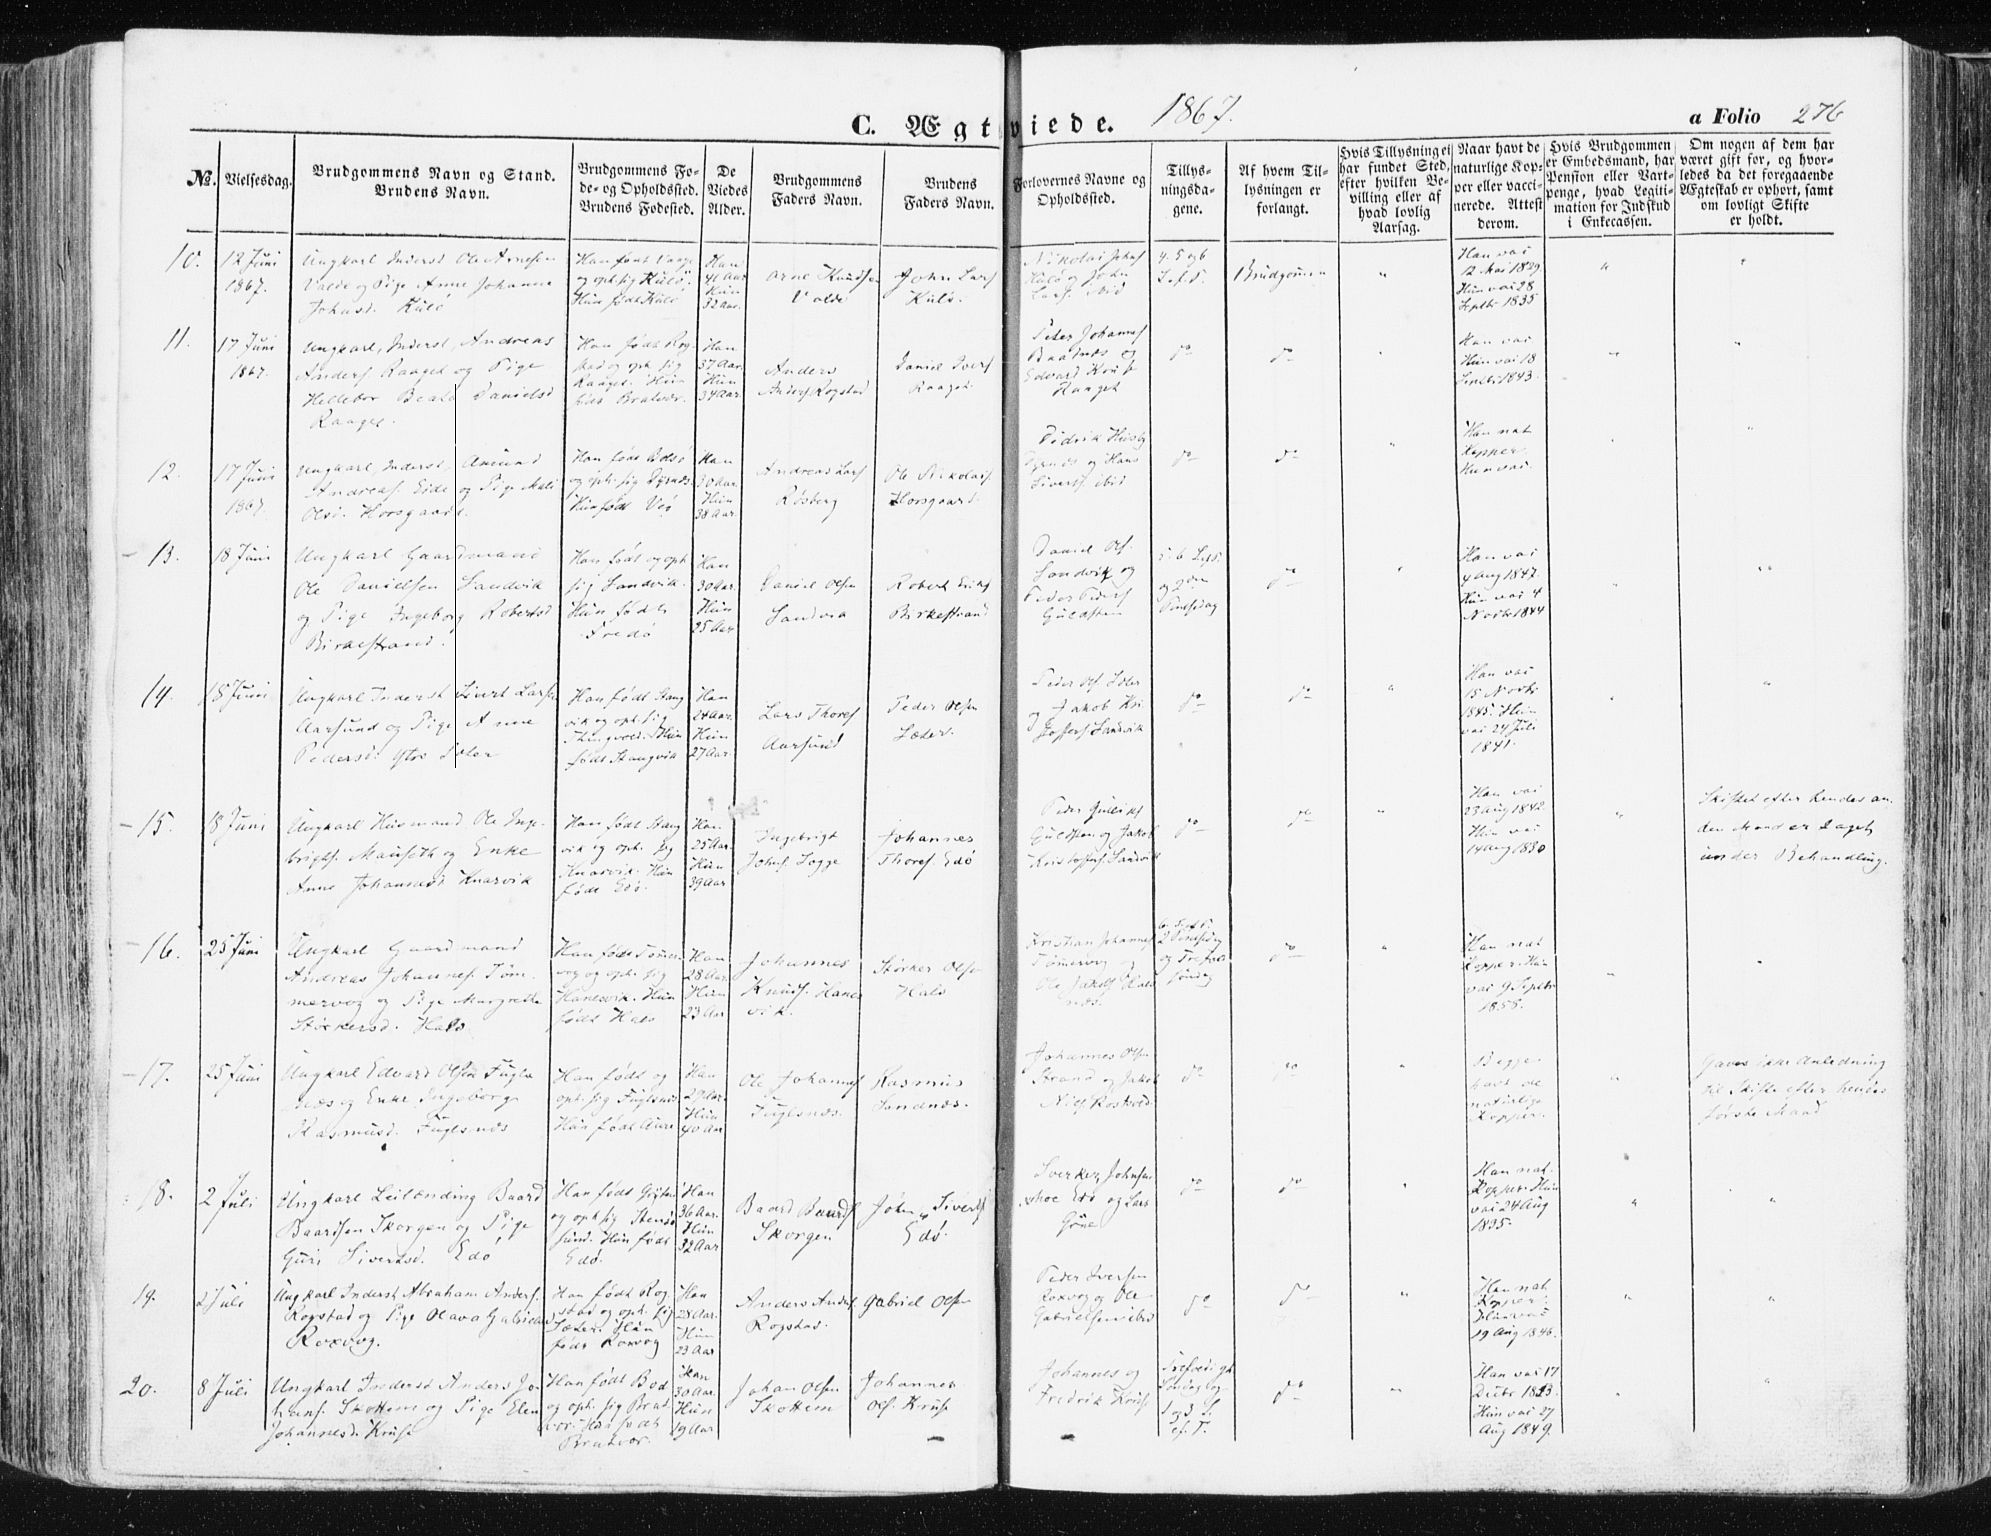 C. Ægteviede. 1867. a Folio 276
No.
Vielsesdag.
Brudgommens Navn og Stand.
Brudens Navn.
Brudgommens Fø-
de- og Opholdssted.
Brudens Fødested.
De
Viedes
Alder.
Brudgommens
Faders Navn.
Brudens
Faders Navn.
Forlovernes Navne og
Opholdssted.
Tillys-
ningsda-
gene.
Af hvem Til-
lysningen er
forlangt.
Hvis Tillysning ei
har fundet Sted,
efter hvilken Be-
villing eller af
hvad lovlig
Aarsag.
Naar havt de
naturlige Kop-
per eller vacci-
nerede. Attest
derom.
Hvis Brudgommen
er Embedsmand, har
Pension eller Vart-
penge, hvad Legiti-
mation for Indskud
i Enkecassen.
Om nogen af dem har
været gift før, og hvor-
ledes da det foregaaende
Ægteskab er ophørt, samt
om lovligt Skifte
er holdt.
10.
12 Juni
1867.
Ungkarl Inderst Ole Arnesen
Valde og Pige Anne Johanna
Johnsd. Kulø
Han født
og oph. sig Kulø.
Hun født Kulø
Han
Aar
Hun
32 Aar.
Arne Knudsen
Valde
John Lars
Kulø.
Nikolai Johns
Kulø og John
Lars. ibid
4. 5 og 6
S. e. P.
Brudgommen
"
Han vai
12 Mai 1829
Hun vai 28
Septbr 1835
"
"
11.
17 Juni
1867.
Ungkarl, Inderst, Andreas
Anders Raaget og Pige
Hellebor Beate Danielsd
Raaget.
Han født Rog-
stad og oph. sig
Raaget. Hun
født Bratvær.
Han
37 Aar.
Hun
34 Aar.
Anders
Anders Rogstad
Daniel Ivers
Raaget
Peter Johannes
og
Edvard Kruse
Raaget
do
do
"
Han vai
Hun vai 18
Septbr 1843.
"
"
12.
17 Juni
1867.
Ungkarl, Inderst, Amund
Andreas. Eide og Pige Mali
Olsd. Horsgaard.
Han født Vedø
og oph. sig Dyrnæs.
Hun født Veø
Han
30 Aar.
Hun
38 Aar.
Andreas Lars
Røsberg
Ole Nikolais
Horsgaard
Fredrik Husby
Dyrnæs og Hans
Siverts ibid
do
do
"
Han nat
Kopper
Hun vai.
"
"
13.
18 Juni
Ungkarl Gaardmand
Ole Danielsen Sandvik
og Pige Ingeborg Robertsd
Birkestrand.
Han født og oph.
sig Sandvik.
Hun født
Fredø
Han
30 Aar.
Hun
25 Aar
Daniel Olsen
Sandvik
Robert Eriks
Birkestrand
Daniel Ols.
Sandvik og
Peder Peders
Guldsten
5. 6 S. e. P.
og 2den
Pintsedag
do
"
Han vai
4 Aug 1847.
Hun vai 4
Novbr 1844
"
"
14.
18 Juni
Ungkarl Inderst Sivert Larsen
Aarsund og Pige Anne
Pedersd. ytre Sæter
Han født Stang-
vik og oph. sig
Thingvold. Hun
født Stangvik
Han
24 Aar.
Hun
27 Aar.
Lars Thores
Aarsund
Peder Olsen
Sæter.
Peder Ols. Sæter
og Jakob Kri-
stoffers Sandvik
do
do
"
Han vai
15 Novbr
1845. Hun
vai 24 Juli
1841.
"
"
15.
18 Juni
Ungkarl Husmand Ole Inge-
brigts. Mauseth og Enke
Anne Johannesd Knarvik
Han født Stang-
vik og oph. sig
Knarvik. Hun
født Edø.
Han
25 Aar
Hun
39 Aar
Ingebrigt
Johns. Sogge
Johannes
Thores. Edø
Peder Gulliks
Guldsten og Jakob
Kristoffers. Sandvik
do
do
"
Han vai
23 Aug 1842.
Hun vai
14 Aug 1830
"
Skiftet efter hendes an-
den Mand er Taget
under Behandling.
16.
25 Juni
Ungkarl Gaardmand
Andreas Johannes. Tøm-
mervog og Pige Margrethe
Størkersd. Hals
Han født Tømmer-
vog og oph. sig
Hanesvik. Hun
født Hals
Han
28 Aar
Hun
23 Aar
Johannes
Knuds. Hanes-
vik.
Størker Olsen
Hals
Kristian Johannes
Tømmervog og
Ole Jakobs Hals-
næs.
2 Pintsedag
og Trefold.
Søndag
do
"
Han nat
Kopper. Hun
vai 9 Septbr
1855.
"
"
17.
25 Juni
Ungkarl Edvard Olsen Fugls-
næs og Enke Ingeborg
Rasmusd. Fuglsnæs
Han født og
oph. sig Fuglsnæs
Hun født Aure
Han
29 Aar.
Hun
40 Aar
Ole Johannes
Fuglsnæs.
Rasmus
Sandnæs.
Johannes Olsen
Strand og Jakob
Nils. Roksvold.
do
do
"
Begge
havt de
naturlige
Kopper.
"
Gaves ikke Anledning
til Skifte efter hendes
første Mand
18.
2 Juli
Ungkarl Leilænding Baard
Baardsen Skorgen og Pige
Guri Sivertsd. Edø
Han født
og oph. sig
sund. Hun født
Edø.
Han
36 Aar.
Hun
32 Aar
Baard Baards
Skorgen
John Siverts
Edø.
Sverker Johnsen
Edø og Lars
do
do
"
Han nat.
Kopper. Hun
vai 24 Aug
1835.
"
"
19.
2 Juli
Ungkarl Inderst Abraham Anders.
Rogstad og Pige Olava Gabrielsd
Roxvog.
Han født Rog-
stad og oph. sig
Sæter. Hun
født Roxvog
Han
28 Aar.
Hun
23 Aar
Anders Anders
Rogstad.
Gabriel Olsen
Peder Iversen
Roxvog og Ole
Gabrielsen ibid
do
do
"
Han nat
Kopper.
Hun vai
19 Aug 1846.
"
"
20.
8 Juli
Ungkarl Inderst Anders Jo-
hans. Skottem og Pige Elen
Johannesd. Kruse
Han født Bod
og oph. sig Brat-
vær. Hun født
Bratvær.
Han
30 Aar.
Hun
19 Aar
Johan Olsen
Skottem
Johannes
Ols. Kruse
Johannes og
Fredrik Kruse
Trefoldigh.
Søndag og
1 og 3 S.
e. T.
do
"
Han vai 17
Decbr 1853.
Hun vai 27
Aug 1849.
"
"